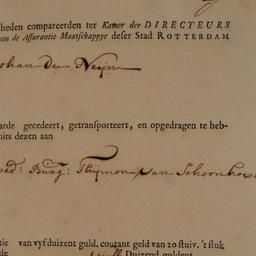 heden compareerden ter Kamer der DIRECTEURS
de Assurantie Maatschappye deser Stad ROTTERDAM
Johan de Neijn
arde gecedeert, getransporteert, en opgedragen te heb-
mits dezen aan
Burg: Thijmon van Schoonhove
tie van vyfduizent guld. courant geld van 20 stuiv. 't stuk
Duizend guldens